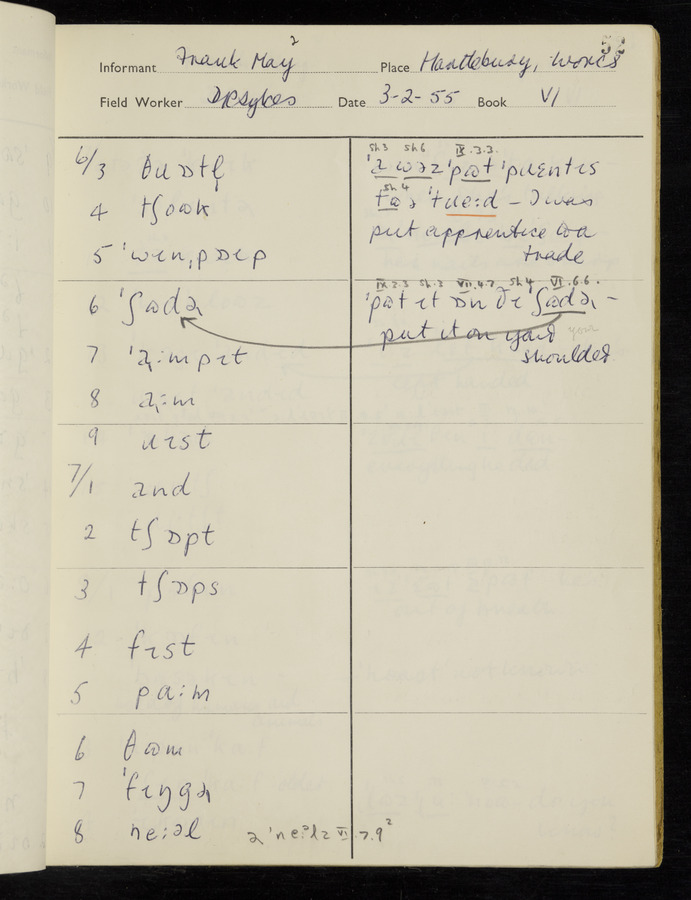 52
Informant Frank May² Place Hartlebury, Worcs
Field Worker D R Sykes Date 3-2-55 Book VI
6/3
4 tʃɷʊk
5 ˈwɪnˌpɒɪp
6 ˈʃɷdəɹ
7 ˈaːmpɪt
8 aːm
9 ɹɪst
7/1 and
2 tʃɒpt
3 tʃɒps
4 fɪst
5 paːm
6 θɷm
7 ˈfɪŋgəɹ
8 neːəl VI.7.9²
sh.3 sh.6 IX.3.3.
ˈa wəz ˈpɷt ˈpɹɛntɪs
sh.4
tɷ ə ˈtɹeːd – I was
put apprentice to a
trade
IX.2.3 sh.2 VII.4.7 sh.4 VI.6.6.
ˈpɷt ɪt ɒn ðɪ ʃɷdəɹ –
put it on your
shoulder